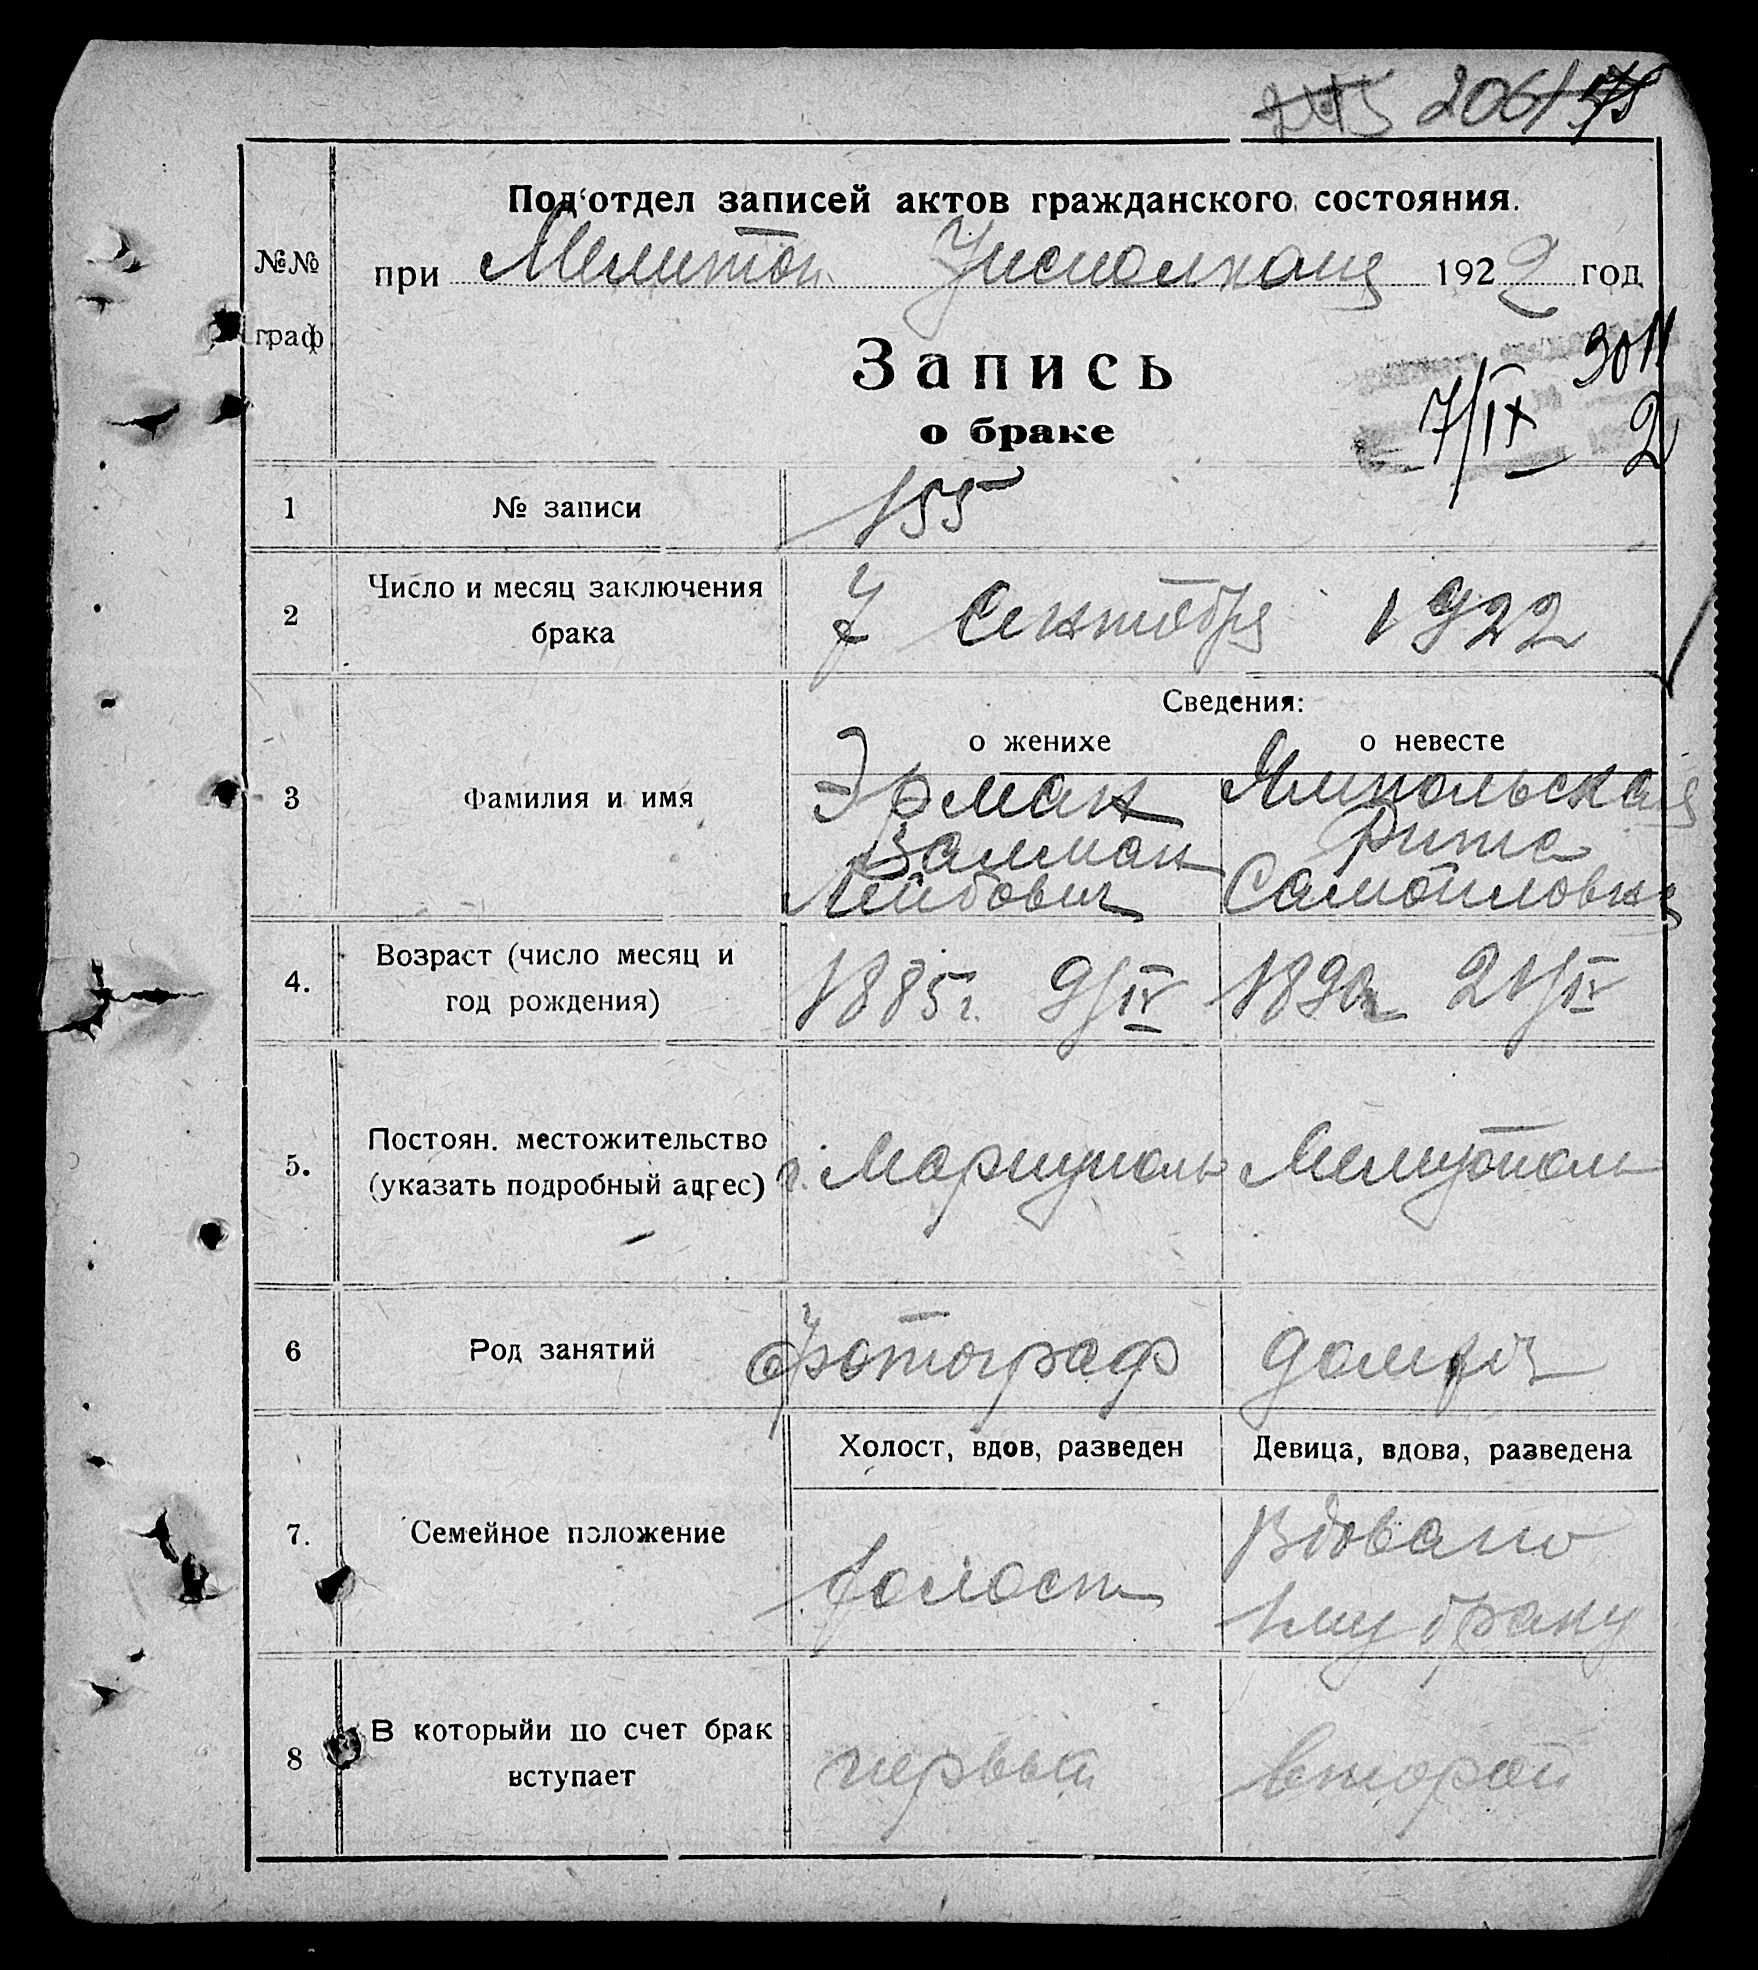 206
Под‘отдел записей актов гражданского состояния.
№№
граф
при Мелитоп. Уисполкоме 1922 год
Запись
о браке
7/IX 2
1 № записи 155
2 Число и месяц заключения
брака
7 Сентября 1922
Сведения:
о женихе о невесте
3 Фамилия и имя
Эрман Ямпольская
Залман Рита
Лейбович Самойловна
4. Возраст (число месяц и
год рождения)
1885г. 9/IV 1890г 21/IV
5. Постоян. местожительство
(указать подробный адрес)
г. Мариуполь Мелитополь
6 Род занятий Фотограф домхоз
Холост, вдов, разведен Девица, вдова, разведена
7. Семейное положение
холост
Вдова по
1му браку
8 В которыйи по счет брак
вступает
первый второй